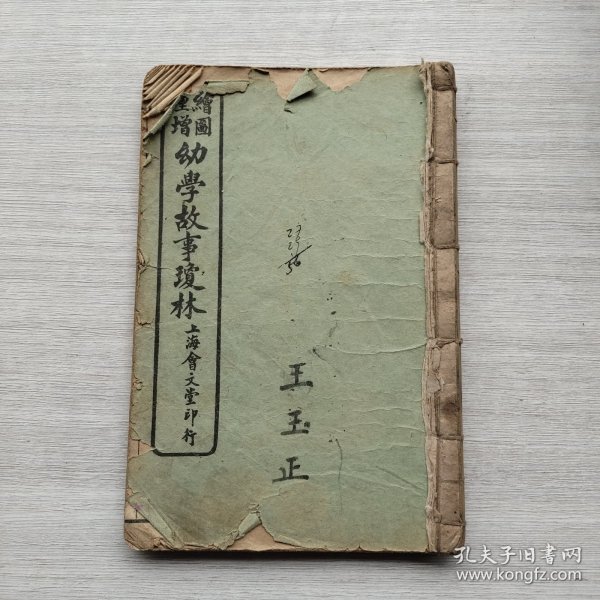 繪圖
增
幼學故事瓊林
上海會文堂印行
王玉正
孔夫子旧书网
www.kongfz.com